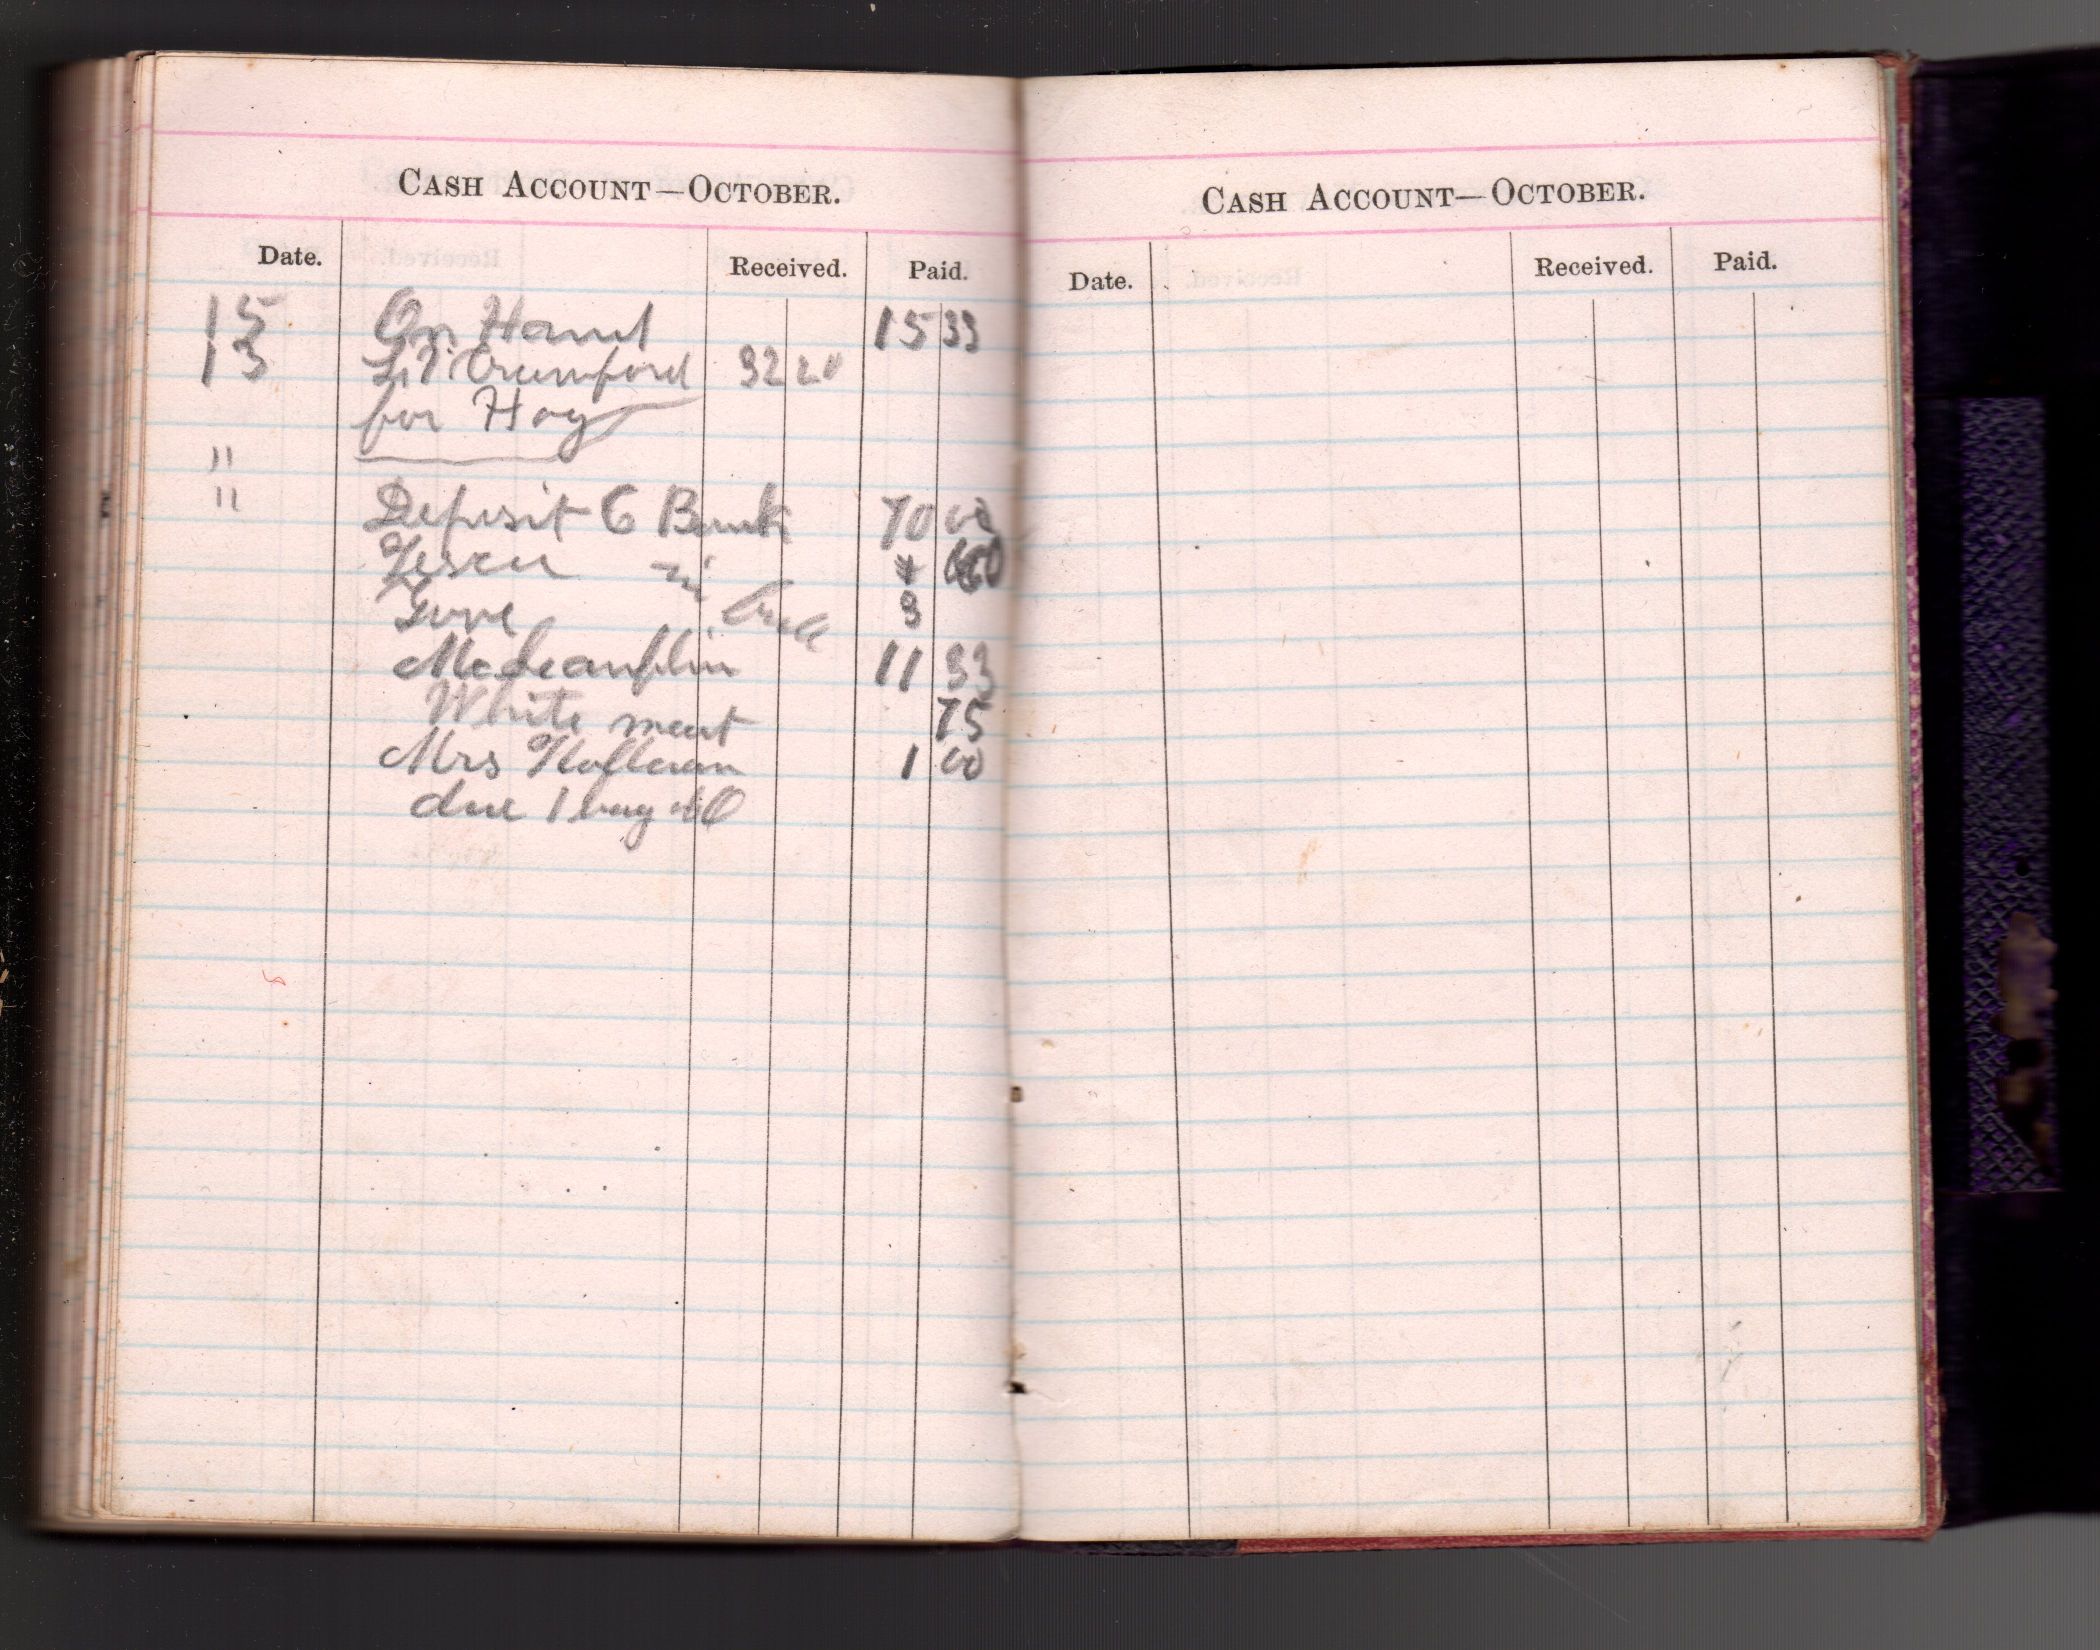 CASH ACCOUNT—OCTOBER.
Date. Received. Paid.
15 On Hand 15 33
13 Crumford 32 20
for Hay
"
" Deposit C Bank 70 00
in
Love 3
11 33
White meat 75
Mrs 1 00
due 1 bag
CASH ACCOUNT—OCTOBER.
Date. Received. Paid.